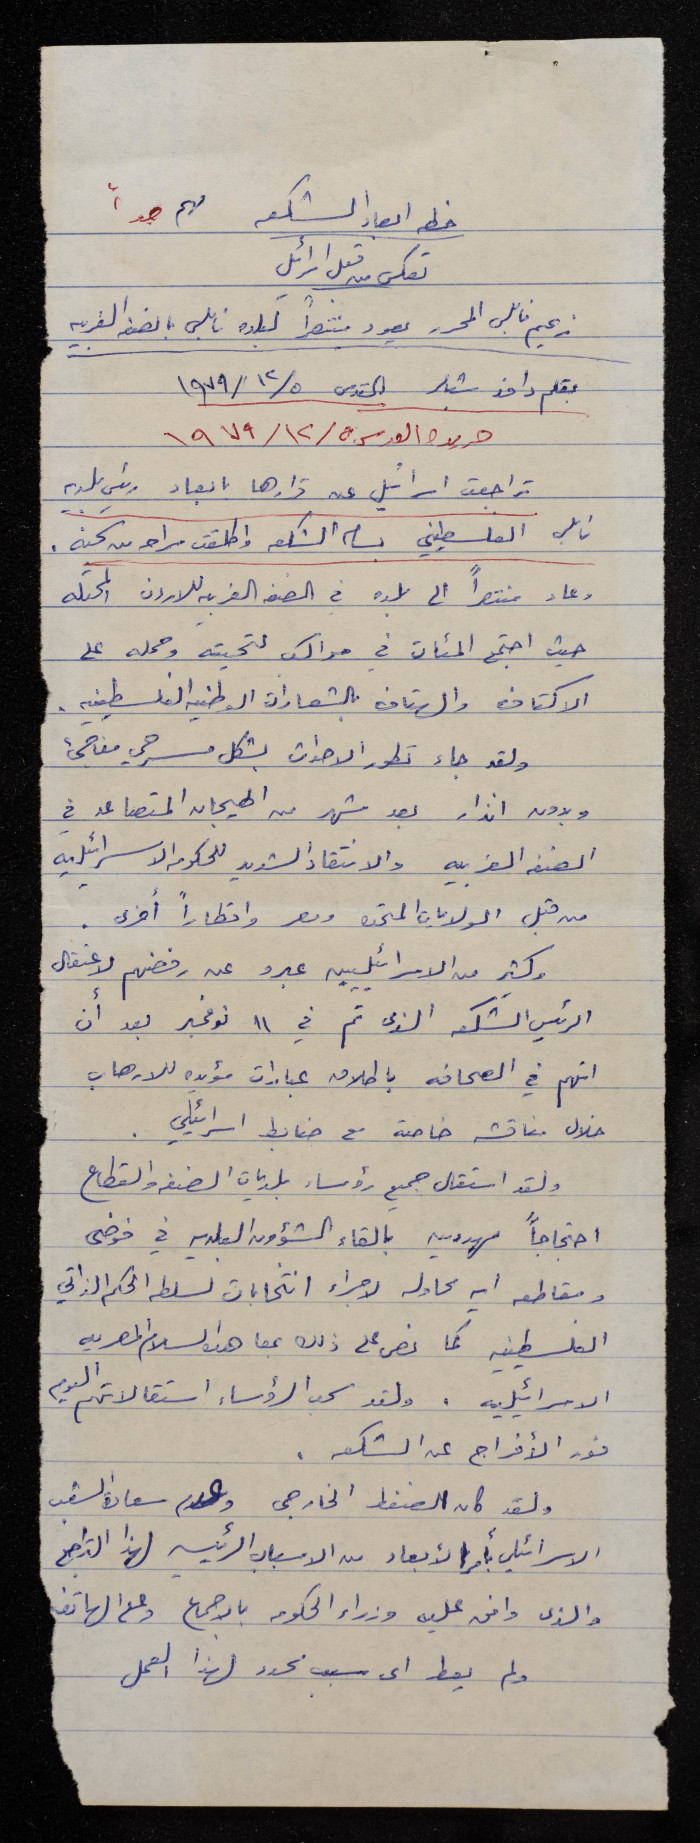 خطه ابعاد الشكعه مهم جداً
تعكس من قبل اسرائيل
زعيم نابلس المحرر يعود منتصراً لبلده نابلس بالضفه الغربيه
بقلم دافد شبلر القدس ١٩٧٩/١٢/٥
جريدة القدس ١٩٧٩/١٢/٥
تراجعت اسرائيل عن قرارها بابعاد رئيس بلديه
نابلس الفلسطيني بسام الشكعه واطلقت سراحه من سجنه .
وعاد منتصراً الى بلده في الضفه الغربيه للاردن المحتله
حيث اجتمع المئات في مواكب لتحيته وحمله على
الاكتاف والهتاف بالشعارات الوطنيه الفلسطينيه .
ولقد جاء تطور الاحداث بشكل مسرحي مفاجئ
وبدون انذار بعد شهر من الهيجان المتصاعد في
الضفه الغربيه والانتقاد الشديد للحكومه الاسرائيليه
من قبل الولايات المتحده ومصر واقطاراً أخرى .
وكثير من الاسرائيليين عبرو عن رفضهم لاعتقال
الرئيس الشكعه الذي تم في ١١ نوفمبر بعد أن
اتهم في الصحافه باطلاق عبارات مؤيده للارهاب
خلال مناقشه خاصة مع ضابط اسرائيلي .
ولقد استقال جميع رؤساء بلديات الضفه والقطاع
احتجاجاً مهددين بالقاء الشؤون البلديه في فوضى
ومقاطعه ايه محاوله لاجراء انتخابات لسلطه الحكم الذاتي
الفلسطينيه كما نص على ذلك بمعاهدة السلام المصريه
الاسرائيليه . ولقد سحب الرؤساء استقالاتهم اليوم
فور الأفراج عن الشكعه .
ولقد كان الضغط الخارجي وعدم سعادة الشعب
الاسرائيلي بأمر الأبعاد من الاسباب الرئيسيه لهذا التراجع
والذى وافق عليه وزراء الحكومه بالاجماع وعلى الهاتف
ولم يعط اى سبب محدد لهذا العمل